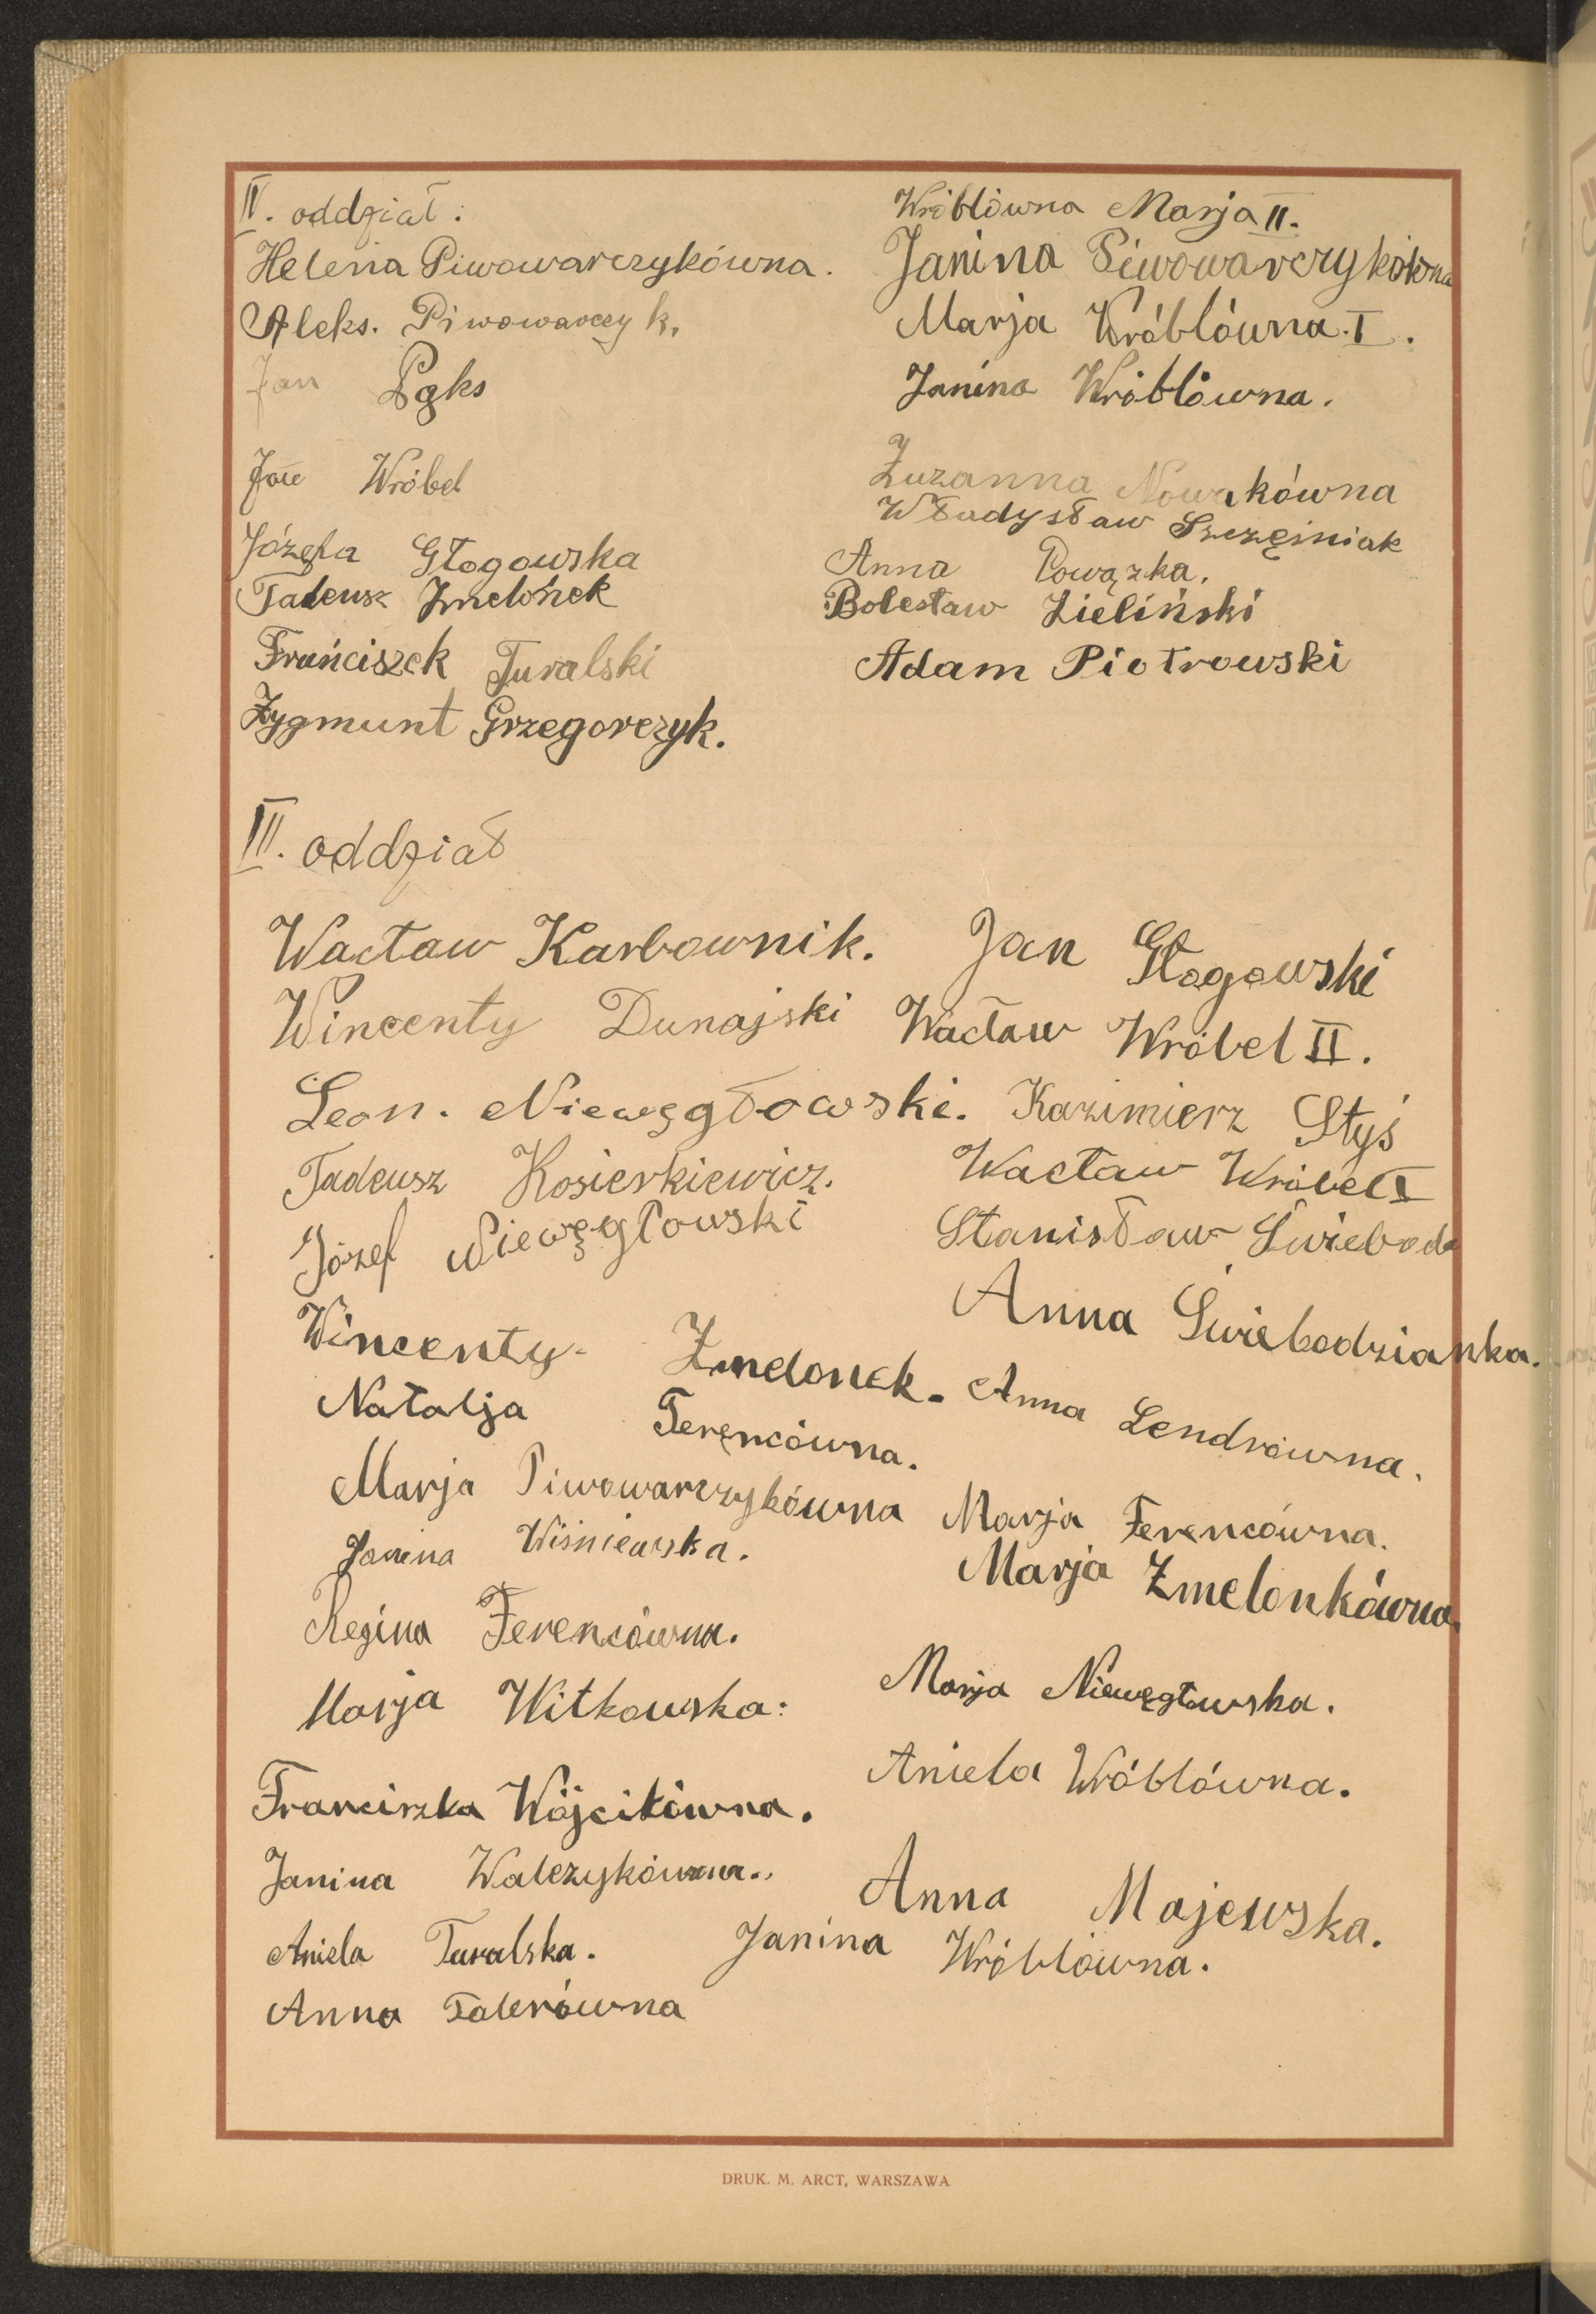 IV. oddział:
Helena Piwowarczykówna.
Aleks. Piwowarczyk.
Jan
Jan Wróbel
Józefa Głogowska
Tadeusz Zmelonek
Frańciszek Turalski
Zygmunt Grzegorczyk.
Wróblówna Marja II.
Janina Piwowarczykówna
Marja Wróblówna I.
Janina Wróblówna.
Zuzanna Nowakówna
Władysław Szczęśniak
Anna Powązka.
Bolesław Zieliński
Adam Piotrowski
III. oddział
Wacław Karbownik.
Wincenty Dunajski
Leon. Niewęgłowski.
Tadeusz Kosierkiewicz.
Józef Niewęgłowski
Wincenty Zmelonek.
Natalja Ferencówna.
Marja Piwowarczykówna
Janina Wiśniewska.
Regina Ferencówna.
Marja Witkowska:
Franciszka Wójcikówna.
Janina Walczykówna.
Aniela Turalska.
Anna Talerówna
Jan Głogowski
Wacław Wróbel II.
Kazimierz Styś
Wacław Wróbel I
Stanisław Świeboda
Anna Świebodzianka.
Anna Lendrówna.
Marja Ferencówna.
Marja Zmelonkówna.
Marja Niewęgłowska.
Aniela Wróblówna.
Anna Majewska.
Janina Wróblówna.
DRUK. M. ARCT, WARSZAWA